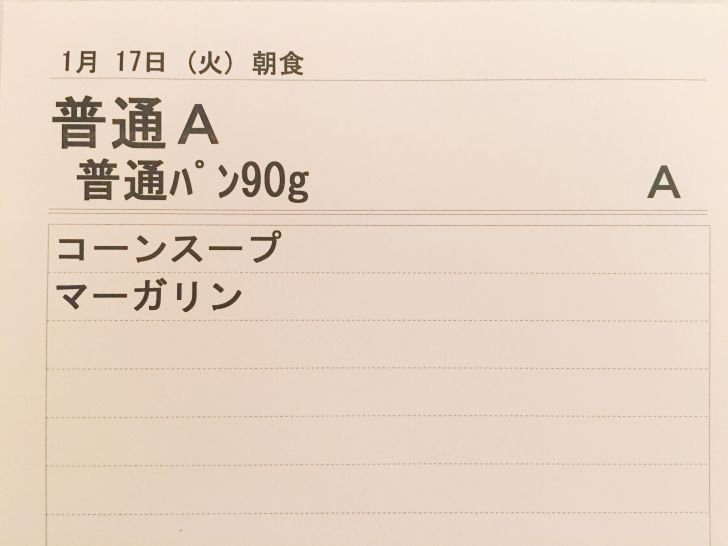 1月 17日 (火) 朝食
普通A
普通ﾊﾟﾝ90g A
コーンスープ
マーガリン